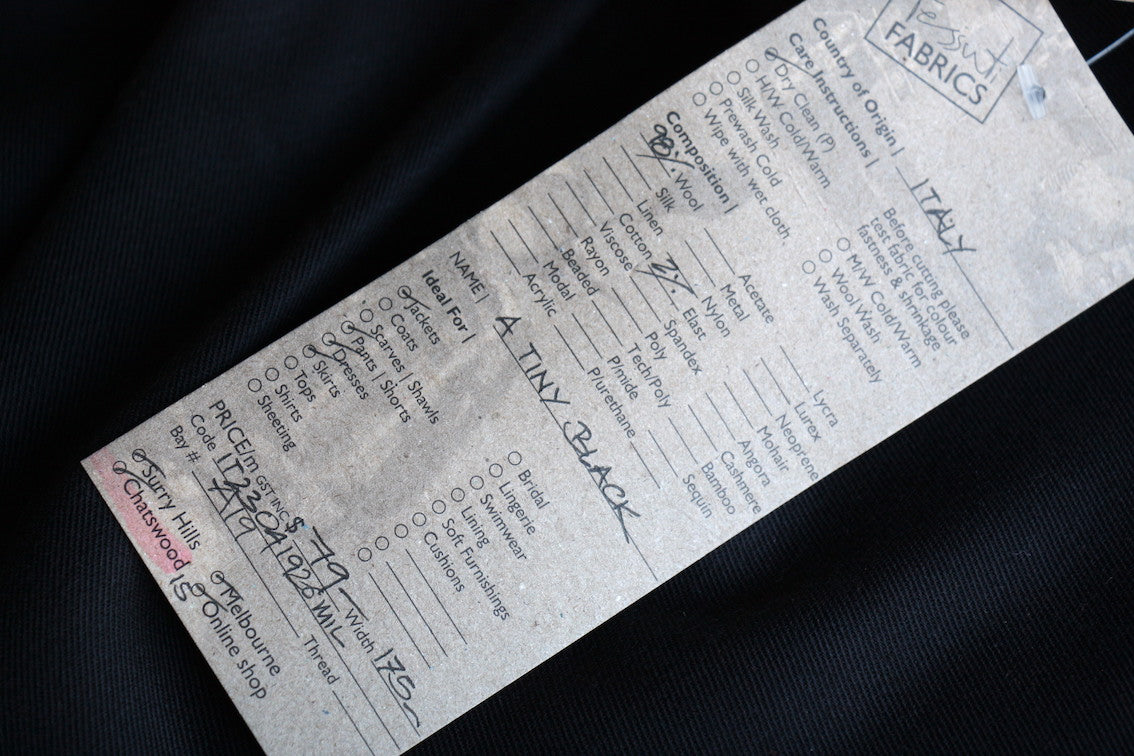 Tessuti
FABRICS
Country of Origin | ITALY
Care Instructions |
Dry Clean (P)
H/W Cold/Warm
Silk Wash
Prewash Cold
Wipe with wet cloth.
Before cutting please
test fabric for colour
fastness & shrinkage
M/W Cold/Warm
Wool Wash
Wash Separately
Composition |
98% Wool
Silk
Linen
Cotton
Viscose
Rayon
Beaded
Modal
Acrylic
Acetate
Metal
Nylon
2% Elast
Spandex
Poly
Tech/Poly
P/mide
P/urethane
Lycra
Lurex
Neoprene
Mohair
Angora
Cashmere
Bamboo
Sequin
NAME | A TINY BLACK
Ideal For |
Jackets
Coats
Scarves | Shawls
Pants | Shorts
Dresses
Skirts
Tops
Shirts
Sheeting
Bridal
Lingerie
Swimwear
Lining
Soft Furnishings
Cushions
PRICE/m GST INC $ 79- Width 175
Code IT23041926MIL
Bay # A19 Thread
Surry Hills
Chatswood 15
Melbourne
Online shop